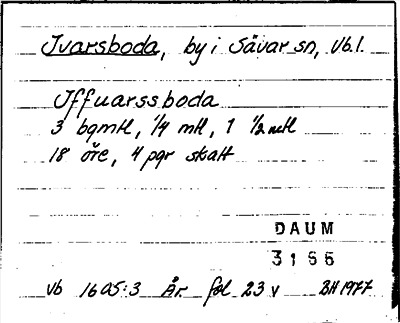 Ivarsboda, by i Sävar sn, Vb.l.
Iffuarssboda
3 bgmtl, 1/4 mtl, 1 1/2 mtl
18 öre, 4 pgr skatt
DAUM
3166
Vb 1605:3 År fol 23 v BH 1977